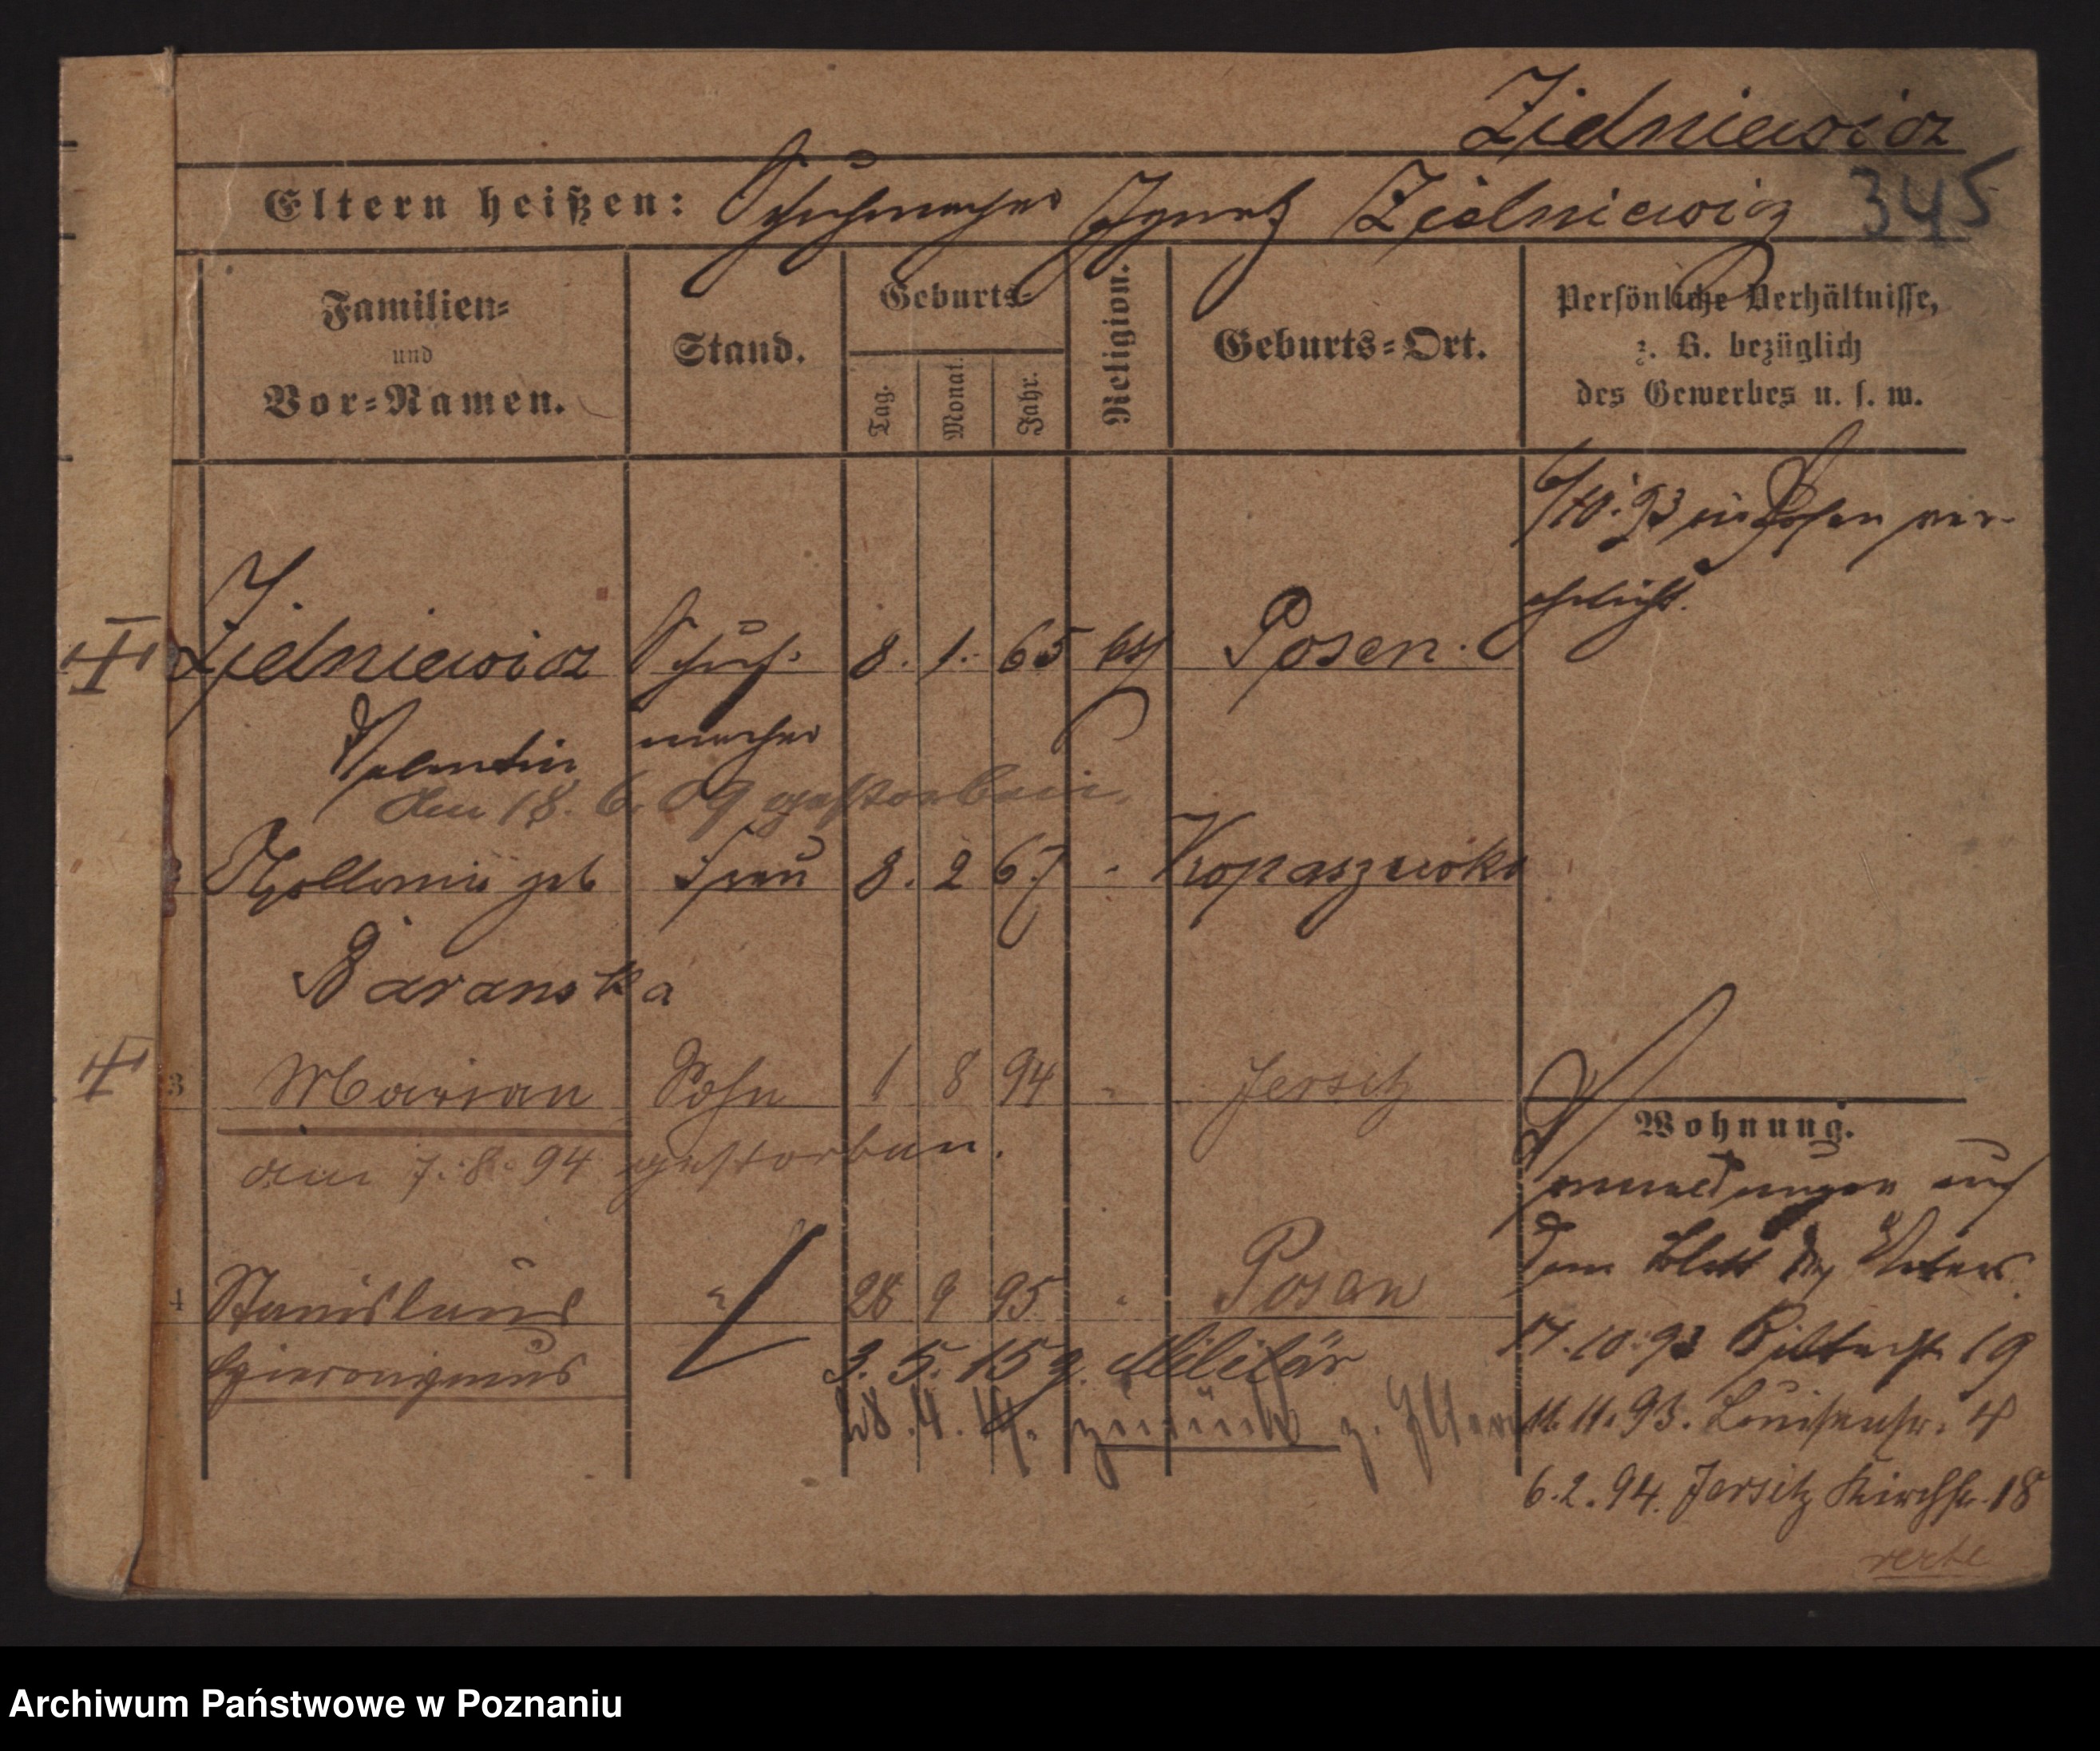 Zielniewicz
Eltern heißen: Schuhmacher Ignatz Zielniewicz 345
Familien- und Vor-Namen.
Stand.
Geburts-
Tag. Monat. Jahr.
Religion.
Geburts-Ort.
Persönliche Verhältnisse,
z. B. bezüglich
des Gewerbes u. s. w.
6/10. 93 in Posen ver-
ehelicht.
Zielniewicz Schuh- 8. 1. 65 kth Posen.
Valentin macher
den 18. 6. 09 gestorben.
Apollonia geb Frau 8. 2 67 " Kopaszewko
Baranska
3 Marian Sohn 1 8 94 " Jersitz
den 7. 8. 94 gestorben.
4 Stanislaus " 28 9 95 " Posen
Hieronymus 3. 5. 15 z. Militär
28. 4. 14. zurück z. Eltern
Wohnung.
Anmeldungen auf
dem Blatt des Vaters.
17. 10. 93 19
11. 11. 93. Louisenstr. 4
6. 2. 94. Jersitz Kirchstr. 18
verte
Archiwum Państwowe w Poznaniu